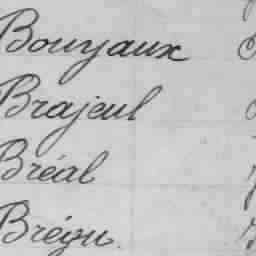 Bouyaux
Brajeul
Bréal
Brégu.